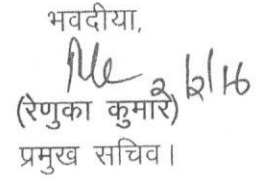 भवदीया,
2/2/16
(रेणुका कुमार)
प्रमुख सचिव।